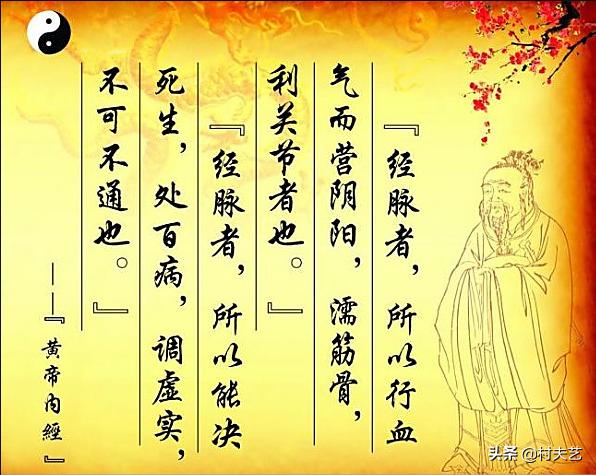 『经脉者，所以行血
气而营阴阳，濡筋骨，
利关节者也。』
『经脉者，所以能决
死生，处百病，调虚实，
不可不通也。』
——『黄帝内經』
头条@村夫艺